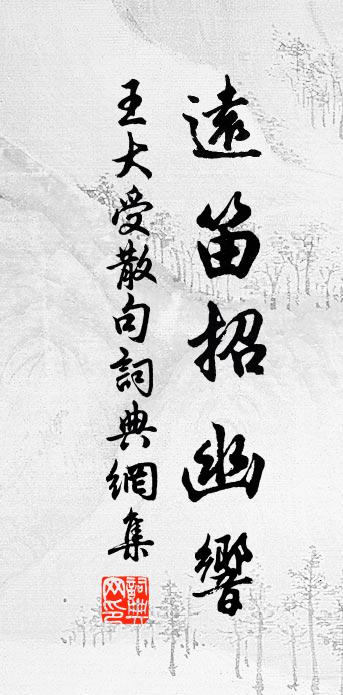 遠笛招幽響
王大受散句詞典網集